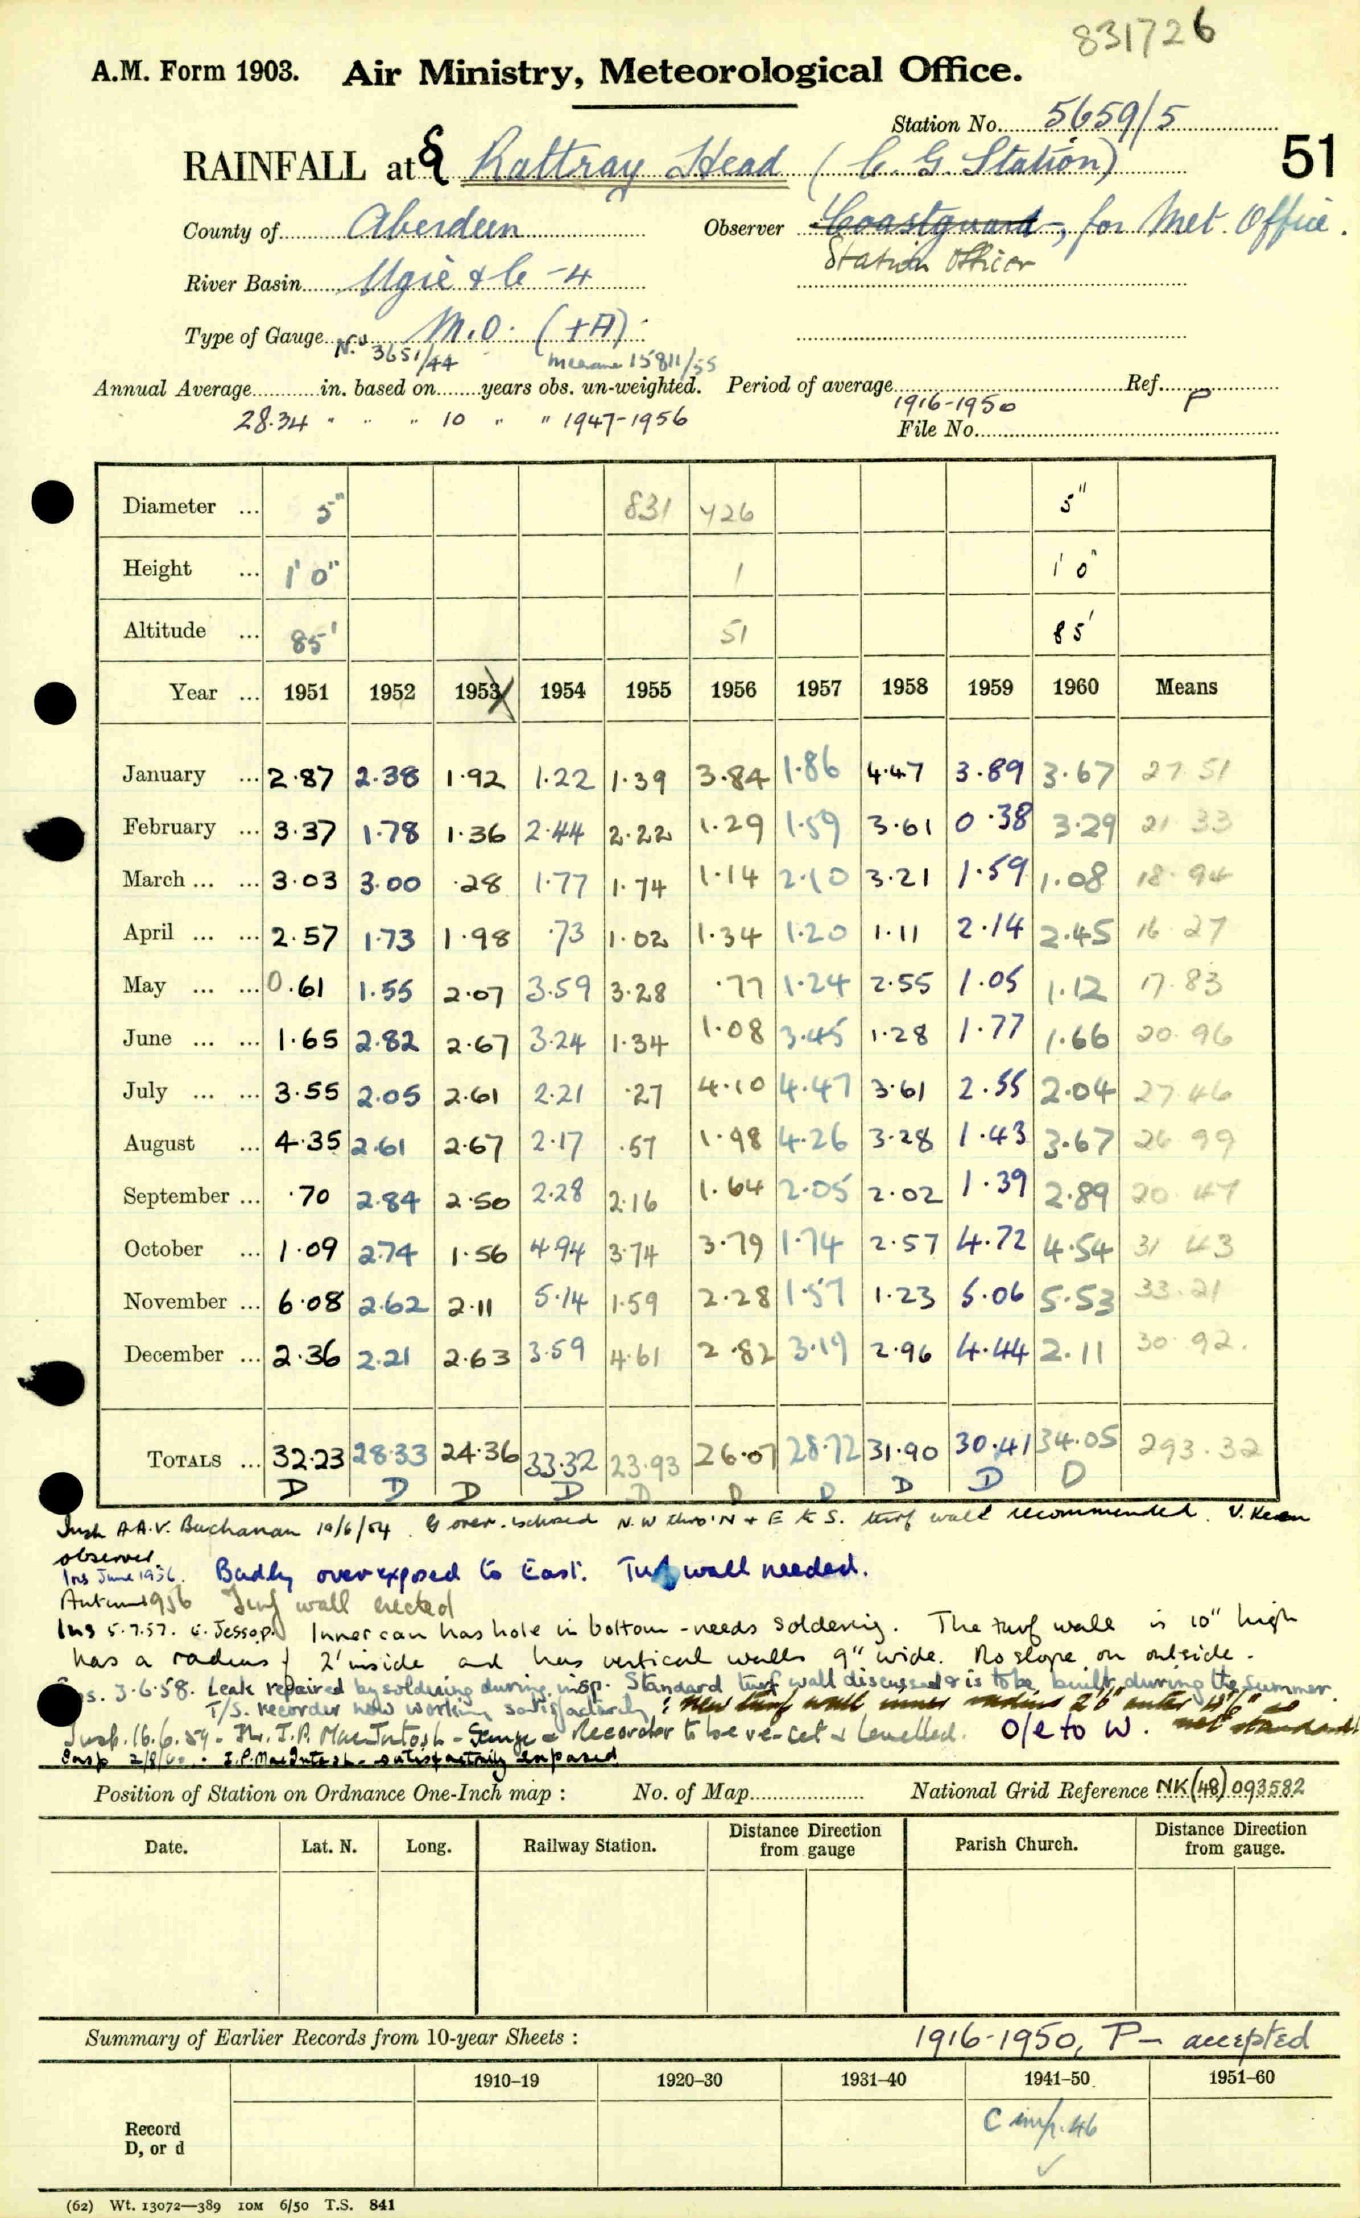 831726
A.M. Form 1903. Air Ministry, Meteorological Office.
Station No. 5659/5
51
RAINFALL at Rattray Head (C. G. Station)
County of Aberdeen Observer Coastguard, for Met. Office.
Station Officer
River Basin Ugie & C - 4
Type of Gauge M.O. (+A)
No. 3651/44 15811/55
Annual Average in. based on years obs. un-weighted. Period of average Ref.
28.34 " " " 10 " " 1947-1956 1916-1950 P
File No.
Diameter ... 5" 831 726 5"
Height ... 1' 0" 1 1' 0"
Altitude ... 85' 51 85'
Year ... 1951 1952 1953 1954 1955 1956 1957 1958 1959 1960 Means
January ... 2.87 2.38 1.92 1.22 1.39 3.84 1.86 4.47 3.89 3.67 27.51
February ... 3.37 1.78 1.36 2.44 2.22 1.29 1.59 3.61 0.38 3.29 21.33
March ... ... 3.03 3.00 .28 1.77 1.74 1.14 2.10 3.21 1.59 1.08 18.94
April ... ... 2.57 1.73 1.98 .73 1.02 1.34 1.20 1.11 2.14 2.45 16.27
May ... ... 0.61 1.55 2.07 3.59 3.28 .77 1.24 2.55 1.05 1.12 17.83
June ... ... 1.65 2.82 2.67 3.24 1.34 1.08 3.45 1.28 1.77 1.66 20.96
July ... ... 3.55 2.05 2.61 2.21 .27 4.10 4.47 3.61 2.55 2.04 27.46
August ... 4.35 2.61 2.67 2.17 .57 1.98 4.26 3.28 1.43 3.67 26.99
September ... .70 2.84 2.50 2.28 2.16 1.64 2.05 2.02 1.39 2.89 20.47
October ... 1.09 2.74 1.56 4.94 3.74 3.79 1.74 2.57 4.72 4.54 31.43
November ... 6.08 2.62 2.11 5.14 1.59 2.28 1.57 1.23 5.06 5.53 33.21
December ... 2.36 2.21 2.63 3.59 4.61 2.82 3.19 2.96 4.44 2.11 30.92.
TOTALS ... 32.23 28.33 24.36 33.32 23.93 26.07 28.72 31.90 30.41 34.05 293.32
D D D D D D D D D D
Insp A.A.V. Buchanan 10/6/54. N.W thro' N + E to S. turf wall recommended. V. Keen
observer.
Ins June 1956. Badly overexposed to East. Turf wall needed.
Autumn 1956 Turf wall erected
Ins 5.7.57. E. Jessop. Inner can has hole in bottom - needs soldering. The turf wall is 10" high
has a radius of 2' inside and has vertical walls 9" wide. No slope on outside.
Ins. 3.6.58. Leak repaired by soldering during insp. Standard turf wall discussed & is to be built during the summer.
T/S. recorder now working satisfactorily: new turf wall inner radius 2'6" outer
not standard
Insp. 16.6.59. Mr. J.P. MacIntosh - Gauge & Recorder to be re-set & levelled. O/E to W.
Insp 2/8/60. J.P. MacIntosh - satisfactorily exposed
Position of Station on Ordnance One-Inch map : No. of Map National Grid Reference NK(48) 093582
Date. Lat. N. Long. Railway Station. Distance Direction from gauge Parish Church. Distance Direction from gauge.
Summary of Earlier Records from 10-year Sheets : 1916-1950, P - accepted
1910–19 1920–30 1931–40 1941–50 1951–60
Record
D, or d
C imp. 46
(62) Wt. 13072—389 10M 6/50 T.S. 841